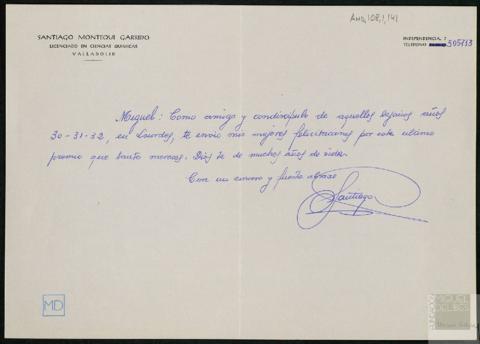 AMD,108,1,141
SANTIAGO MONTEQUI GARRIDO
LICENCIADO EN CIENCIAS QUIMICAS
VALLADOLID
INDEPENDENCIA, 7
TELEFONO 305713
Miguel: Como amigo y condiscípulo de aquellos lejanos años
30-31-32, en Lourdes, te envío mis mejores felicitaciones por este último
premio que tanto mereces. Dios te de muchos años de vida.
Con un sincero y fuerte abrazo
Santiago
MD
FUNDACIÓN
MIGUEL
DELIBES